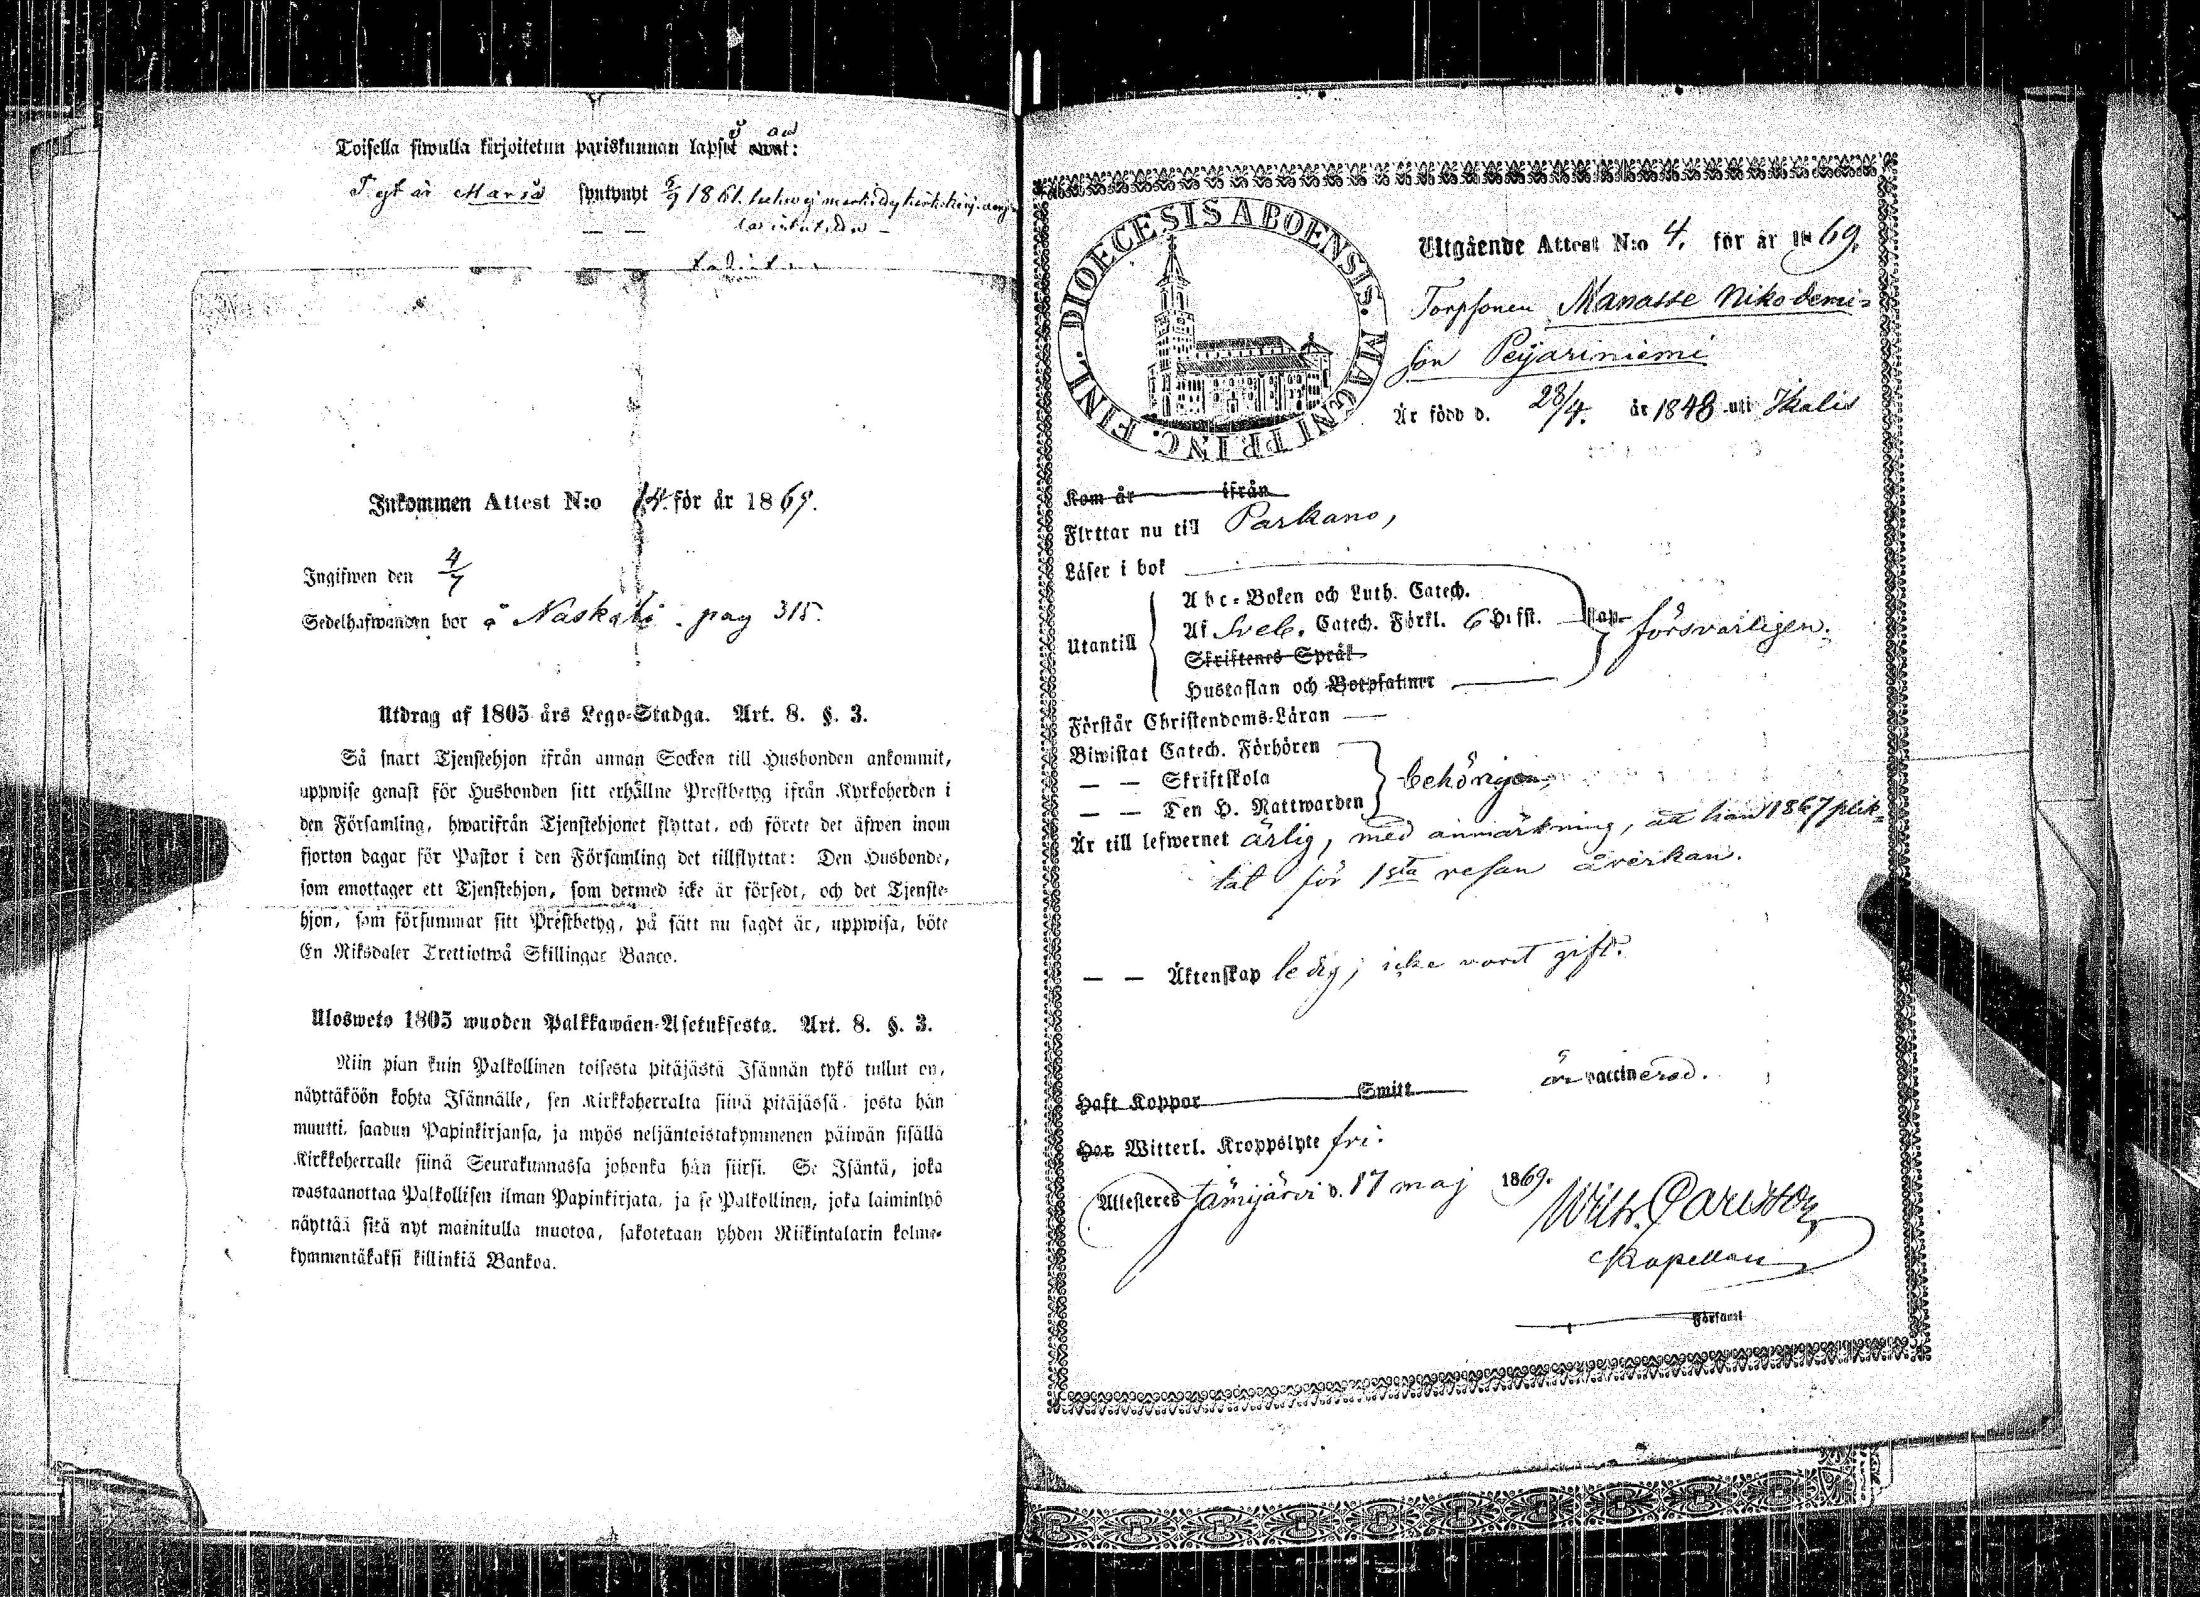 Toisella siwulla kirjoitetun pariskunnan lapset owat:
Maria syntynyt 5/9 1861.
Inkommen Attest N:o 14. för år 1869.
Ingifwen den 4/7
Sedelhafwanden bor å Naskali. pag 315.
Utdrag af 1805 års Lego-Stadga. Art. 8. §. 3.
Så snart Tjenstehjon ifrån annan Socken till Husbonden ankommit,
uppwise genast för Husbonden sitt erhållne Prestbetyg ifrån Kyrkoherden i
den Församling, hwarifrån Tjenstehjonet flyttat, och förete det äfwen inom
fjorton dagar för Pastor i den Församling det tillflyttat: Den Husbonde,
som emottager ett Tjenstehjon, som dermed icke är försedt, och det Tjenste-
hjon, som försummar sitt Prestbetyg, på sätt nu sagdt är, uppwisa, böte
En Riksdaler Trettiotwå Skillingar Banco.
Ulosweto 1805 wuoden Palkkawäen-Asetuksesta. Art. 8. §. 3.
Niin pian kuin Palkollinen toisesta pitäjästä Isännän tykö tullut on,
näyttäköön kohta Isännälle, sen Kirkkoherralta siinä pitäjässä, josta hän
muutti, saadun Papinkirjansa, ja myös neljäntoistakymmenen päiwän sisällä
Kirkkoherralle siinä Seurakunnassa johonka hän siirsi. Se Isäntä, joka
wastaanottaa Palkollisen ilman Papinkirjata, ja se Palkollinen, joka laiminlyö
näyttää sitä nyt mainitulla muotoa, sakotetaan yhden Riikintalarin kolme-
kymmentäkaksi killinkiä Bankoa.
DIOECESIS ABOENSIS. MAGNI PRINC. FINL.
Utgående Attest N:o 4. för år 1869.
Torpsonen Manasse Nikodemi-
son Peijariniemi
Är född d. 28/4. år 1848 uti Ikalis
Kom år ifrån
Flyttar nu till Parkano,
Läser i bok
Utantill
Abc-Boken och Luth. Catech.
Af Sveb. Catech. Förkl. 6 Hufst. kap
Skriftenes Språk
Hustaflan och Botpsalmer
försvarligen.
Förstår Christendoms-Läran
Biwistat Catech. Förhören
— — Skriftskola
— — Den H. Nattwarden
behörigen,
Är till lefwernet ärlig, med anmärkning, att han 1867 plik-
tat för 1sta resan åverkan.
— — Äktenskap ledig; icke varit gift.
Haft Koppor Smitt är vaccinerad.
Har Witterl. Kroppslyte fri.
Attesteres Jämijärvi d. 17 maj 1869.
Wilh. Carlsson
Kapellan
Församl